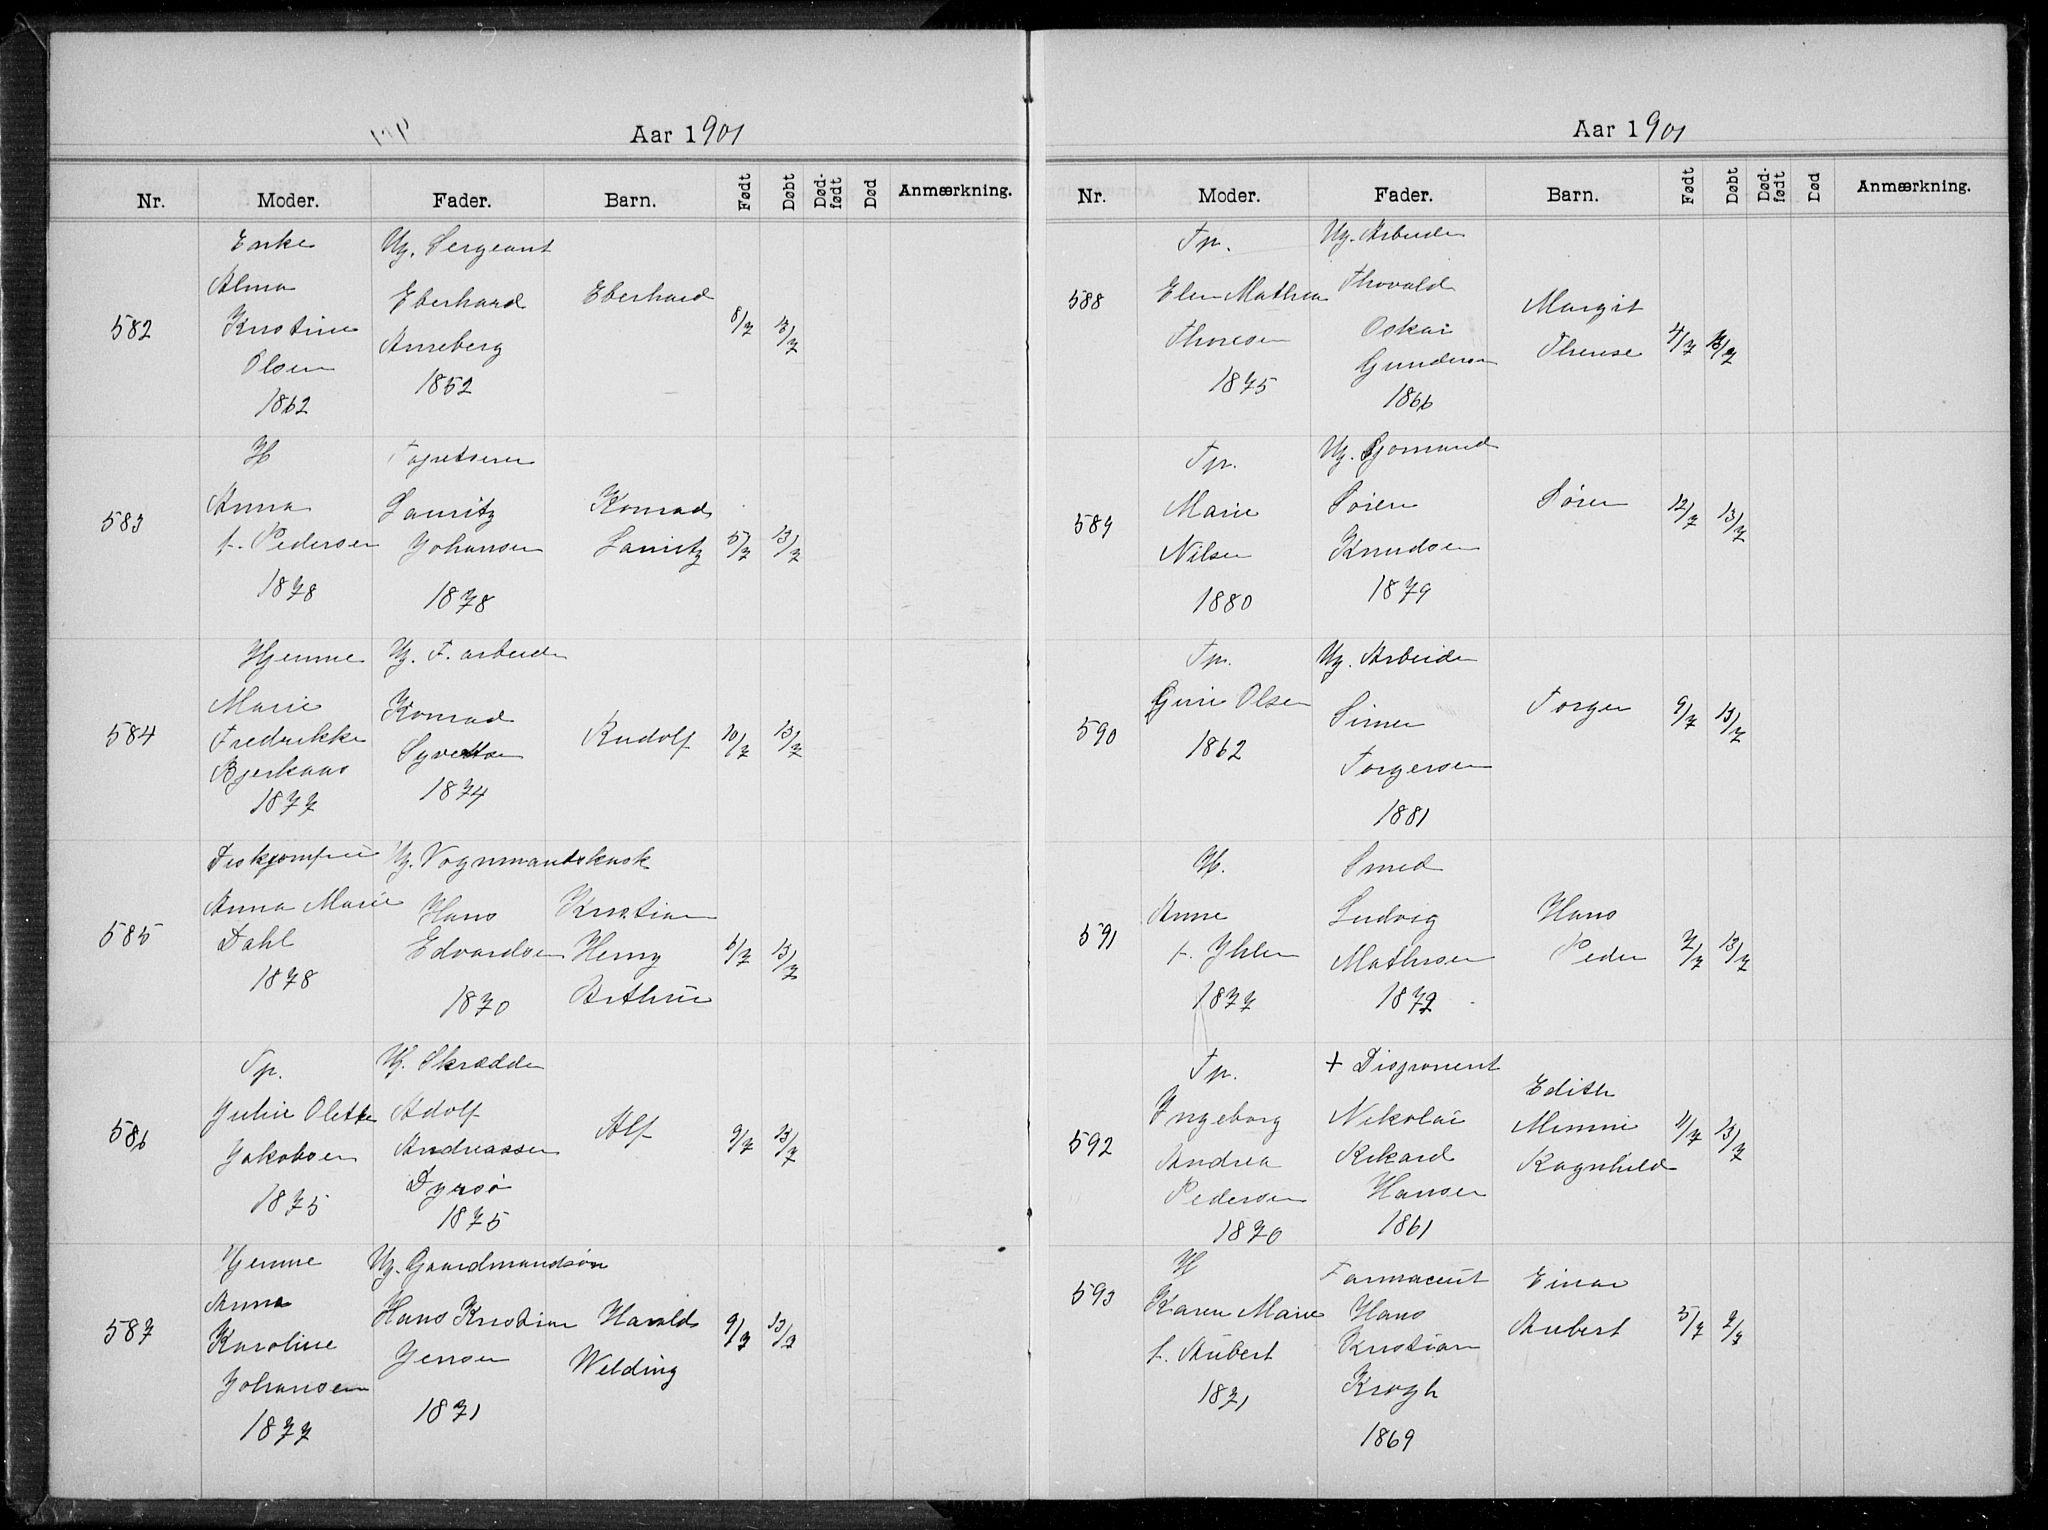 Aar 1901
Nr. Moder. Fader. Barn. Født Døbt Død-født Død Anmærkning.
582
Enke
Alma
Kristine
Olsen
1862
Ug. Sergeant
Eberhard
Anneberg
1852
Eberhard
8/7 13/7
583
H
Anna
f. Pedersen
1878
Lauritz
Johansen
1878
Konrad
Lauritz
5/7 13/7
584
Hjemme
Marie
Fredrikke
Bjerkaas
1877
Ug. F. arbeider
Konrad
Syvertsen
1874
Rudolf
10/7 13/7
585
Diskjomfru
Anna Marie
Dahl
1878
Ug. Vognmandskusk
Hans
Edvardsen
1870
Kristian
Henry
Arthur
6/7 13/7
586
Tp.
Julie Olette
Jakobsen
1875
Ug. Skrædder
Adolf
Andreassen
Dyrsø
1875
Alf
9/7 13/7
587
Hjemme
Anna
Karoline
Johansen
1877
Ug. Gaardmandsøn
Hans Kristian
Jensen
1871
Harald
Welding
9/7 13/7
Aar 1901
Nr. Moder. Fader. Barn. Født Døbt Død-født Død Anmærkning.
588
Tp.
Elen Mathea
Thoresen
1875
Ug. Arbeider
Thorvald
Oskar
Gundersen
1866
Margit
Therese
4/7 13/7
589
Tp.
Marie
Nilsen
1880
Ug. Sjømand
Søren
Knudsen
1879
Søren
12/7 13/7
590
Tp.
Guri Olsen
1862
Ug. Arbeider
Simen
Torgersen
1881
Torger
9/7 13/7
591
H.
Anne
f. Yhlen
1877
Smed
Ludvig
Mathisen
1872
Hans
Peder
7/7 13/7
592
Tp.
Ingeborg
Andrea
Pedersen
1870
+ Disponent
Nikolai
Rikard
Hansen
1861
Edith
Mimmi
Ragnhild
11/7 13/7
593
H
Karen Marie
f. Aubert
1871
Farmaceut
Hans
Kristian
Krogh
1869
Einar
Aubert
5/7 9/7